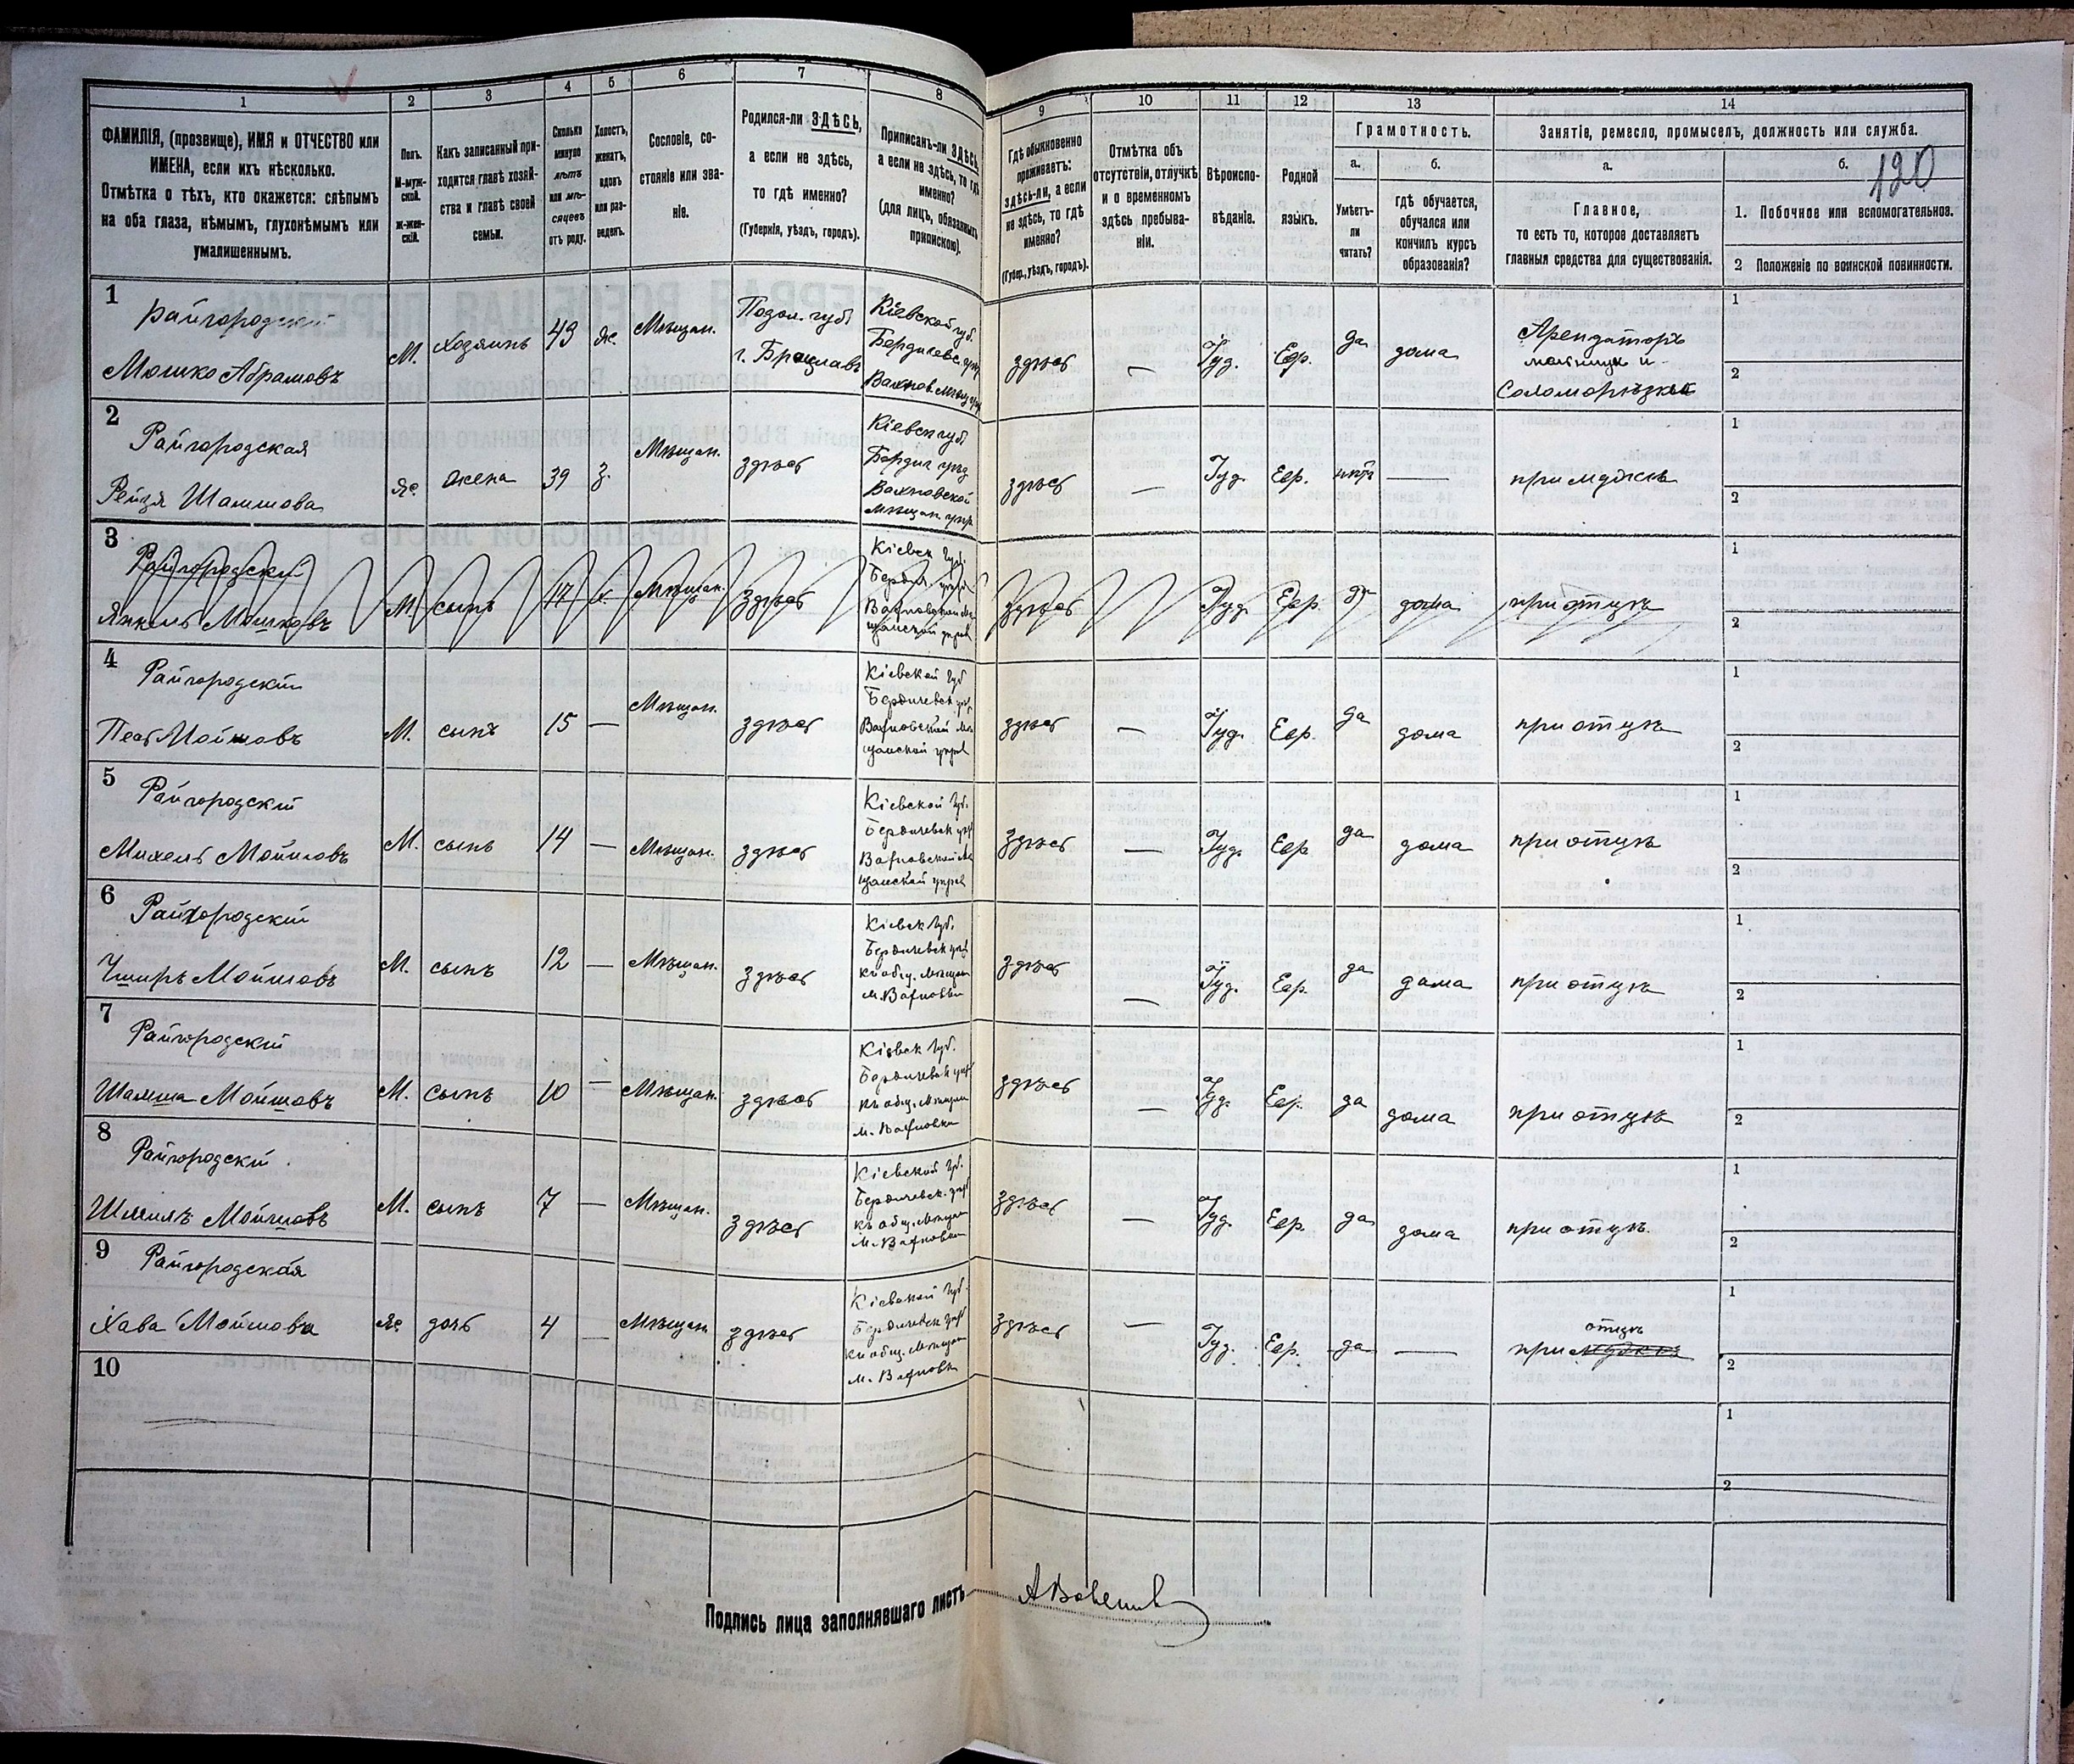 1
2
3
4
5
6
7
8
9
10
11
12
13
14
ФАМИЛІЯ, (прозвище), ИМЯ и ОТЧЕСТВО или
ИМЕНА, если ихъ нѣсколько.
Отмѣтка о тѣхъ, кто окажется: слѣпымъ
на оба глаза, нѣмымъ, глухонѣмымъ или
умалишеннымъ.
Полъ.
М-муж-
ской.
ж-жен-
скій.
Какъ записанный при-
ходится главѣ хозяй-
ства и главѣ своей
семьи.
Сколько
минуло
лѣтъ
или мѣ-
сяцевъ
отъ роду.
Холостъ,
женатъ,
вдовъ
или раз-
веденъ.
Сословіе, со-
стояніе или зва-
ніе.
Родился-ли ЗДѢСЬ,
а если не здѣсь,
то гдѣ именно?
(Губернія, уѣздъ, городъ).
Приписанъ-ли ЗДѢСЬ
а если не здѣсь, то гдѣ
именно?
(для лицъ, обязанныхъ
припискою).
Гдѣ обыкновенно
проживаетъ:
здѣсь-ли, а если
не здѣсь, то гдѣ
именно?
(Губер., уѣздъ, городъ).
Отмѣтка объ
отсутствіи, отлучкѣ
и о временномъ
здѣсь пребыва-
ніи.
Вѣроиспо-
вѣданіе.
Родной
языкъ.
Грамотность.
а.
Умѣетъ-
ли
читать?
б.
гдѣ обучается,
обучался или
кончилъ курсъ
образованія?
Занятіе, ремесло, промыселъ, должность или служба.
а.
Главное,
то есть то, которое доставляетъ
главныя средства для существованія.
б.
120
1. Побочное или вспомогательное.
2 Положеніе по воинской повинности.
1
Райгородскій
Мошко Абрамовъ
М.
хозяинъ
43
ж.
Мѣщан.
Подол. губ
г. Брацлавъ
Кіевской губ.
Бердичевс. уѣзд
здѣсь
—
Іуд.
Евр.
да
дома
Арендаторъ
1
2
2
Райгородская
Рейзя Шаммова
ж.
жена
39
з.
Мѣщан.
здѣсь
Кіевск губ
Бердич уѣзд
Вахновской
Мѣщан. упр.
здѣсь
—
Іуд.
Евр.
нѣтъ
—
при мужѣ
1
2
3
Райгородскій
Янкель Мошковъ
М
сынъ
17
х.
Мѣщан.
здѣсь
Кіевск губ.
Бердич. уѣзд
Вахновской мѣ
щанской управ
здѣсь
Іуд.
Евр.
да
дома
при отцѣ
1
2
4
Райгородскій
М.
сынъ
15
—
Мѣщан.
здѣсь
Кіевской губ
Бердичевск уѣз
Вахновской мѣ
щанской управ
здѣсь
—
Іуд.
Евр.
да
дома
при отцѣ
1
2
5
Райгородскій
Михель Мойшовъ
М.
сынъ
14
—
Мѣщан.
здѣсь
Кіевской губ.
Бердичевск уѣз
Вахновской мѣ
щанской управ
здѣсь
—
Іуд.
Евр
да
дома
при отцѣ
1
2
6
Райгородскій
М.
сынъ
12
—
Мѣщан.
здѣсь
Кіевск губ.
Бердичевск уѣз
къ общ. мѣщан
м. Вахновки
здѣсь
—
Іуд.
Евр.
да
дома
при отцѣ
1
2
7
Райгородскій
Шамша Мойшовъ
М.
сынъ
10
—
Мѣщан.
здѣсь
Кіевск губ.
Бердичевск уѣз
къ общ. мѣщан
м. Вахновки
здѣсь
—
Іуд.
Евр.
да
дома
при отцѣ
1
2
8
Райгородскій
Шмиль Мойшовъ
М.
сынъ
7
—
Мѣщан.
здѣсь
Кіевской губ.
Бердичевск. уѣз
къ общ. мѣщан
м. Вахновки
здѣсь
—
Іуд.
Евр.
да
дома
при отцѣ.
1
2
9
Райгородская
Хава Мойшова
ж.
дочь
4
—
Мѣщан
здѣсь
Кіевской губ.
Бердичевск уѣз
къ общ. мѣщан
м. Вахновки
здѣсь
—
Іуд.
Евр.
да
—
отцѣ
при мужѣ
1
2
10
1
2
Подпись лица заполнявшаго листъ